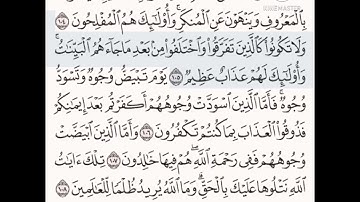 KINEMASTER
بِٱلْمَعْرُوفِ وَيَنْهَوْنَ عَنِ ٱلْمُنكَرِ ۚ وَأُو۟لَـٰٓئِكَ هُمُ ٱلْمُفْلِحُونَ ١٠٤
وَلَا تَكُونُوا۟ كَٱلَّذِينَ تَفَرَّقُوا۟ وَٱخْتَلَفُوا۟ مِنۢ بَعْدِ مَا جَآءَهُمُ ٱلْبَيِّنَـٰتُ ۚ
وَأُو۟لَـٰٓئِكَ لَهُمْ عَذَابٌ عَظِيمٌ ١٠٥ يَوْمَ تَبْيَضُّ وُجُوهٌ وَتَسْوَدُّ
وُجُوهٌ ۚ فَأَمَّا ٱلَّذِينَ ٱسْوَدَّتْ وُجُوهُهُمْ أَكَفَرْتُم بَعْدَ إِيمَـٰنِكُمْ
فَذُوقُوا۟ ٱلْعَذَابَ بِمَا كُنتُمْ تَكْفُرُونَ ١٠٦ وَأَمَّا ٱلَّذِينَ ٱبْيَضَّتْ
وُجُوهُهُمْ فَفِى رَحْمَةِ ٱللَّهِ هُمْ فِيهَا خَـٰلِدُونَ ١٠٧ تِلْكَ ءَايَـٰتُ
ٱللَّهِ نَتْلُوهَا عَلَيْكَ بِٱلْحَقِّ ۗ وَمَا ٱللَّهُ يُرِيدُ ظُلْمًا لِّلْعَـٰلَمِينَ ١٠٨